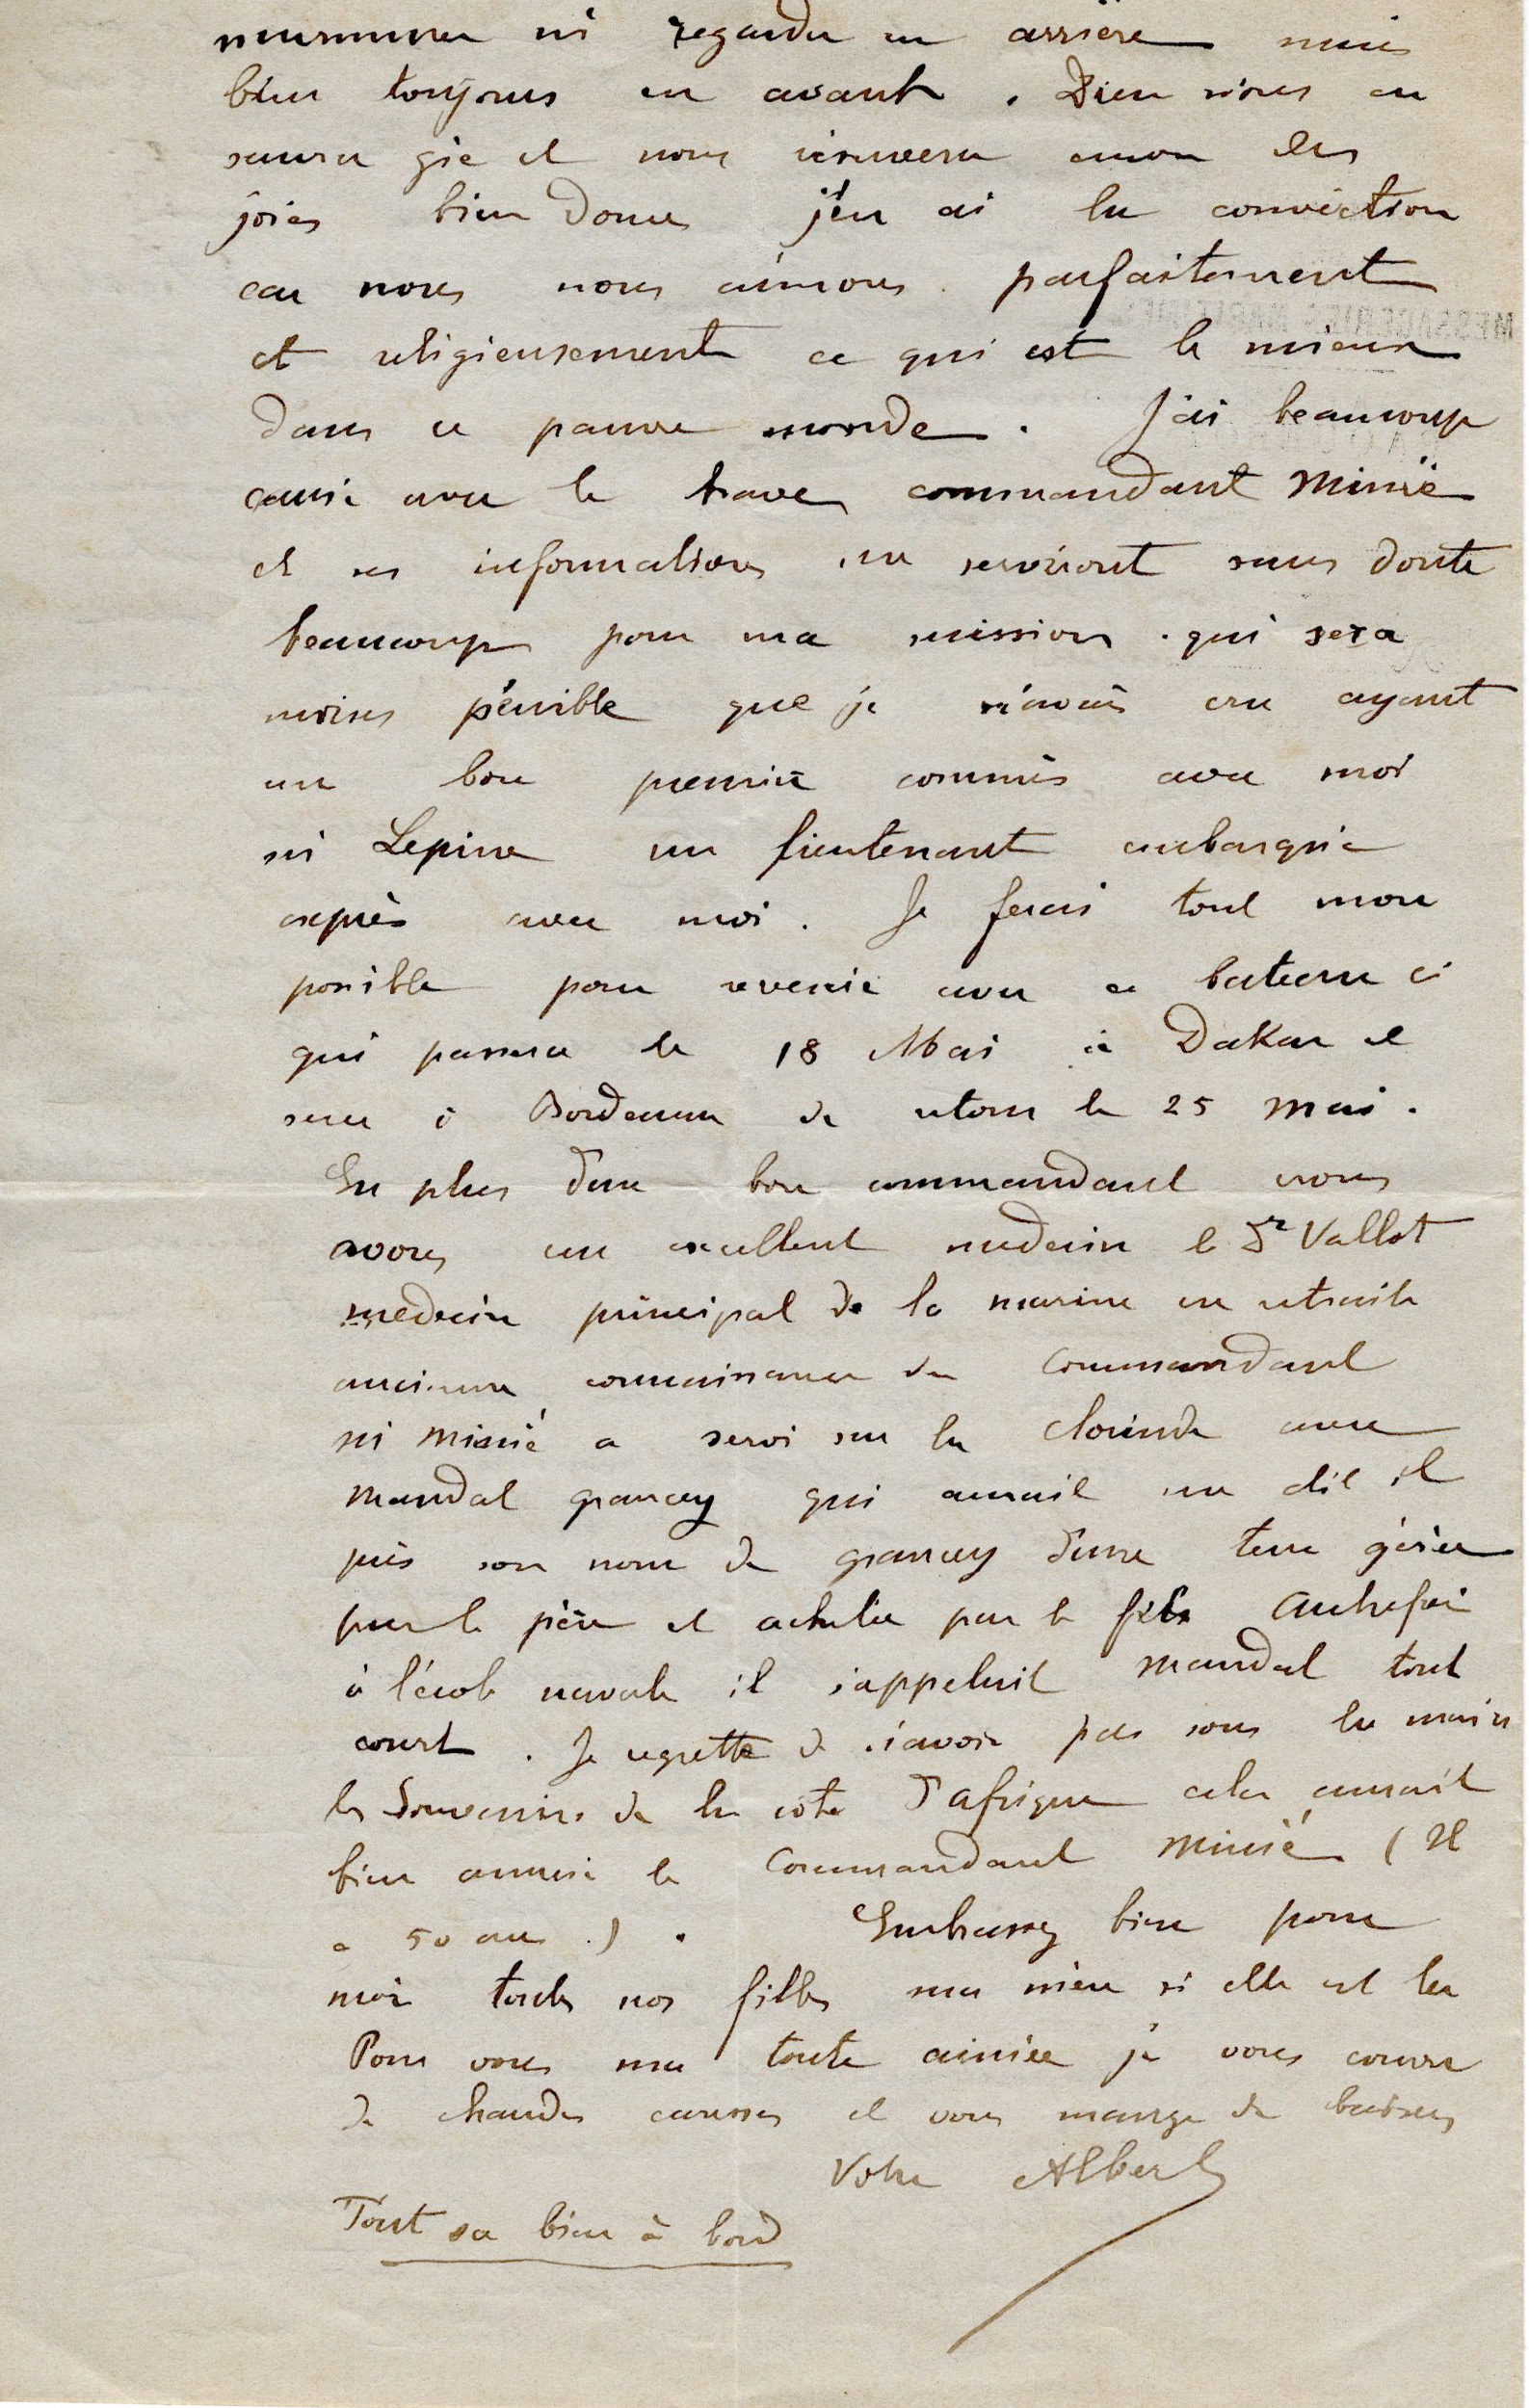 murmurer ni regarder en arrière mais
bien toujours en avant. Dieu nous en
saura gré et nous réservera encore des
joies bien douces j'en ai la conviction
car nous nous aimons parfaitement
et religieusement ce qui est le mieux
dans ce pauvre monde. J'ai beaucoup
causé avec le brave commandant Minié
et ses informations me serviront sans doute
beaucoup pour ma mission qui sera
moins pénible que je n'avais cru ayant
un bon premier commis avec moi
Mr Lepine un lieutenant embarqué
exprès avec moi. Je ferais tout mon
possible pour revenir avec ce bateau ci
qui passera le 18 Mai à Dakar et
sera à Bordeaux de retour le 25 Mai.
En plus d'un bon commandant nous
avons un excellent medecin le Dr Vallot
medecin principal de la marine en retraite
ancienne connaissance du Commandant
Mr Minié a servi sur la Clorinde avec
Mandat grancey qui aurait me dit il
pris son nom de grancey d'une terre gérée
par le père et achetée par le fils Autrefois
à l'école navale il s'appelait Mandat tout
court. Je regrette de n'avoir pas sous la main
les Souvenirs de la côte d'afrique cela aurait
bien amusé le Commandant Minié (Il
a 50 ans). Embrassez bien pour
moi toutes nos filles ma mère si elle est là
Pour vous ma toute aimée je vous couvre
de chaudes caresses et vous mange de baisers
Votre Albert
Tout va bien à bord